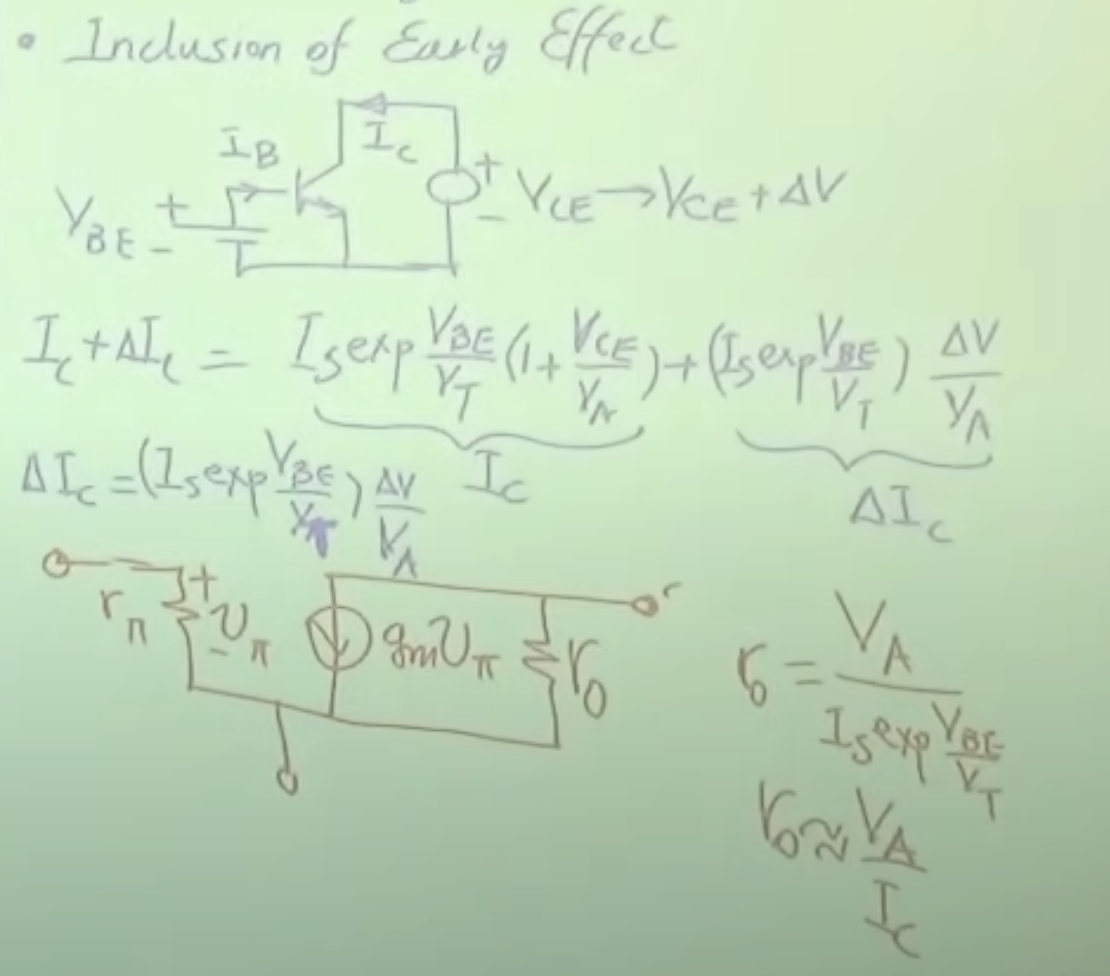 • Inclusion of Early Effect
I_B
I_C
V_BE + -
+ - V_CE → V_CE + ΔV
I_C + ΔI_C = I_S exp V_BE/V_T (1 + V_CE/V_A) + (I_S exp V_BE/V_T) ΔV/V_A
I_C
ΔI_C
ΔI_C = (I_S exp V_BE/V_T) ΔV/V_A
r_π + - v_π
g_m v_π
r_O
r_O = V_A / I_S exp V_BE/V_T
r_O ≈ V_A / I_C